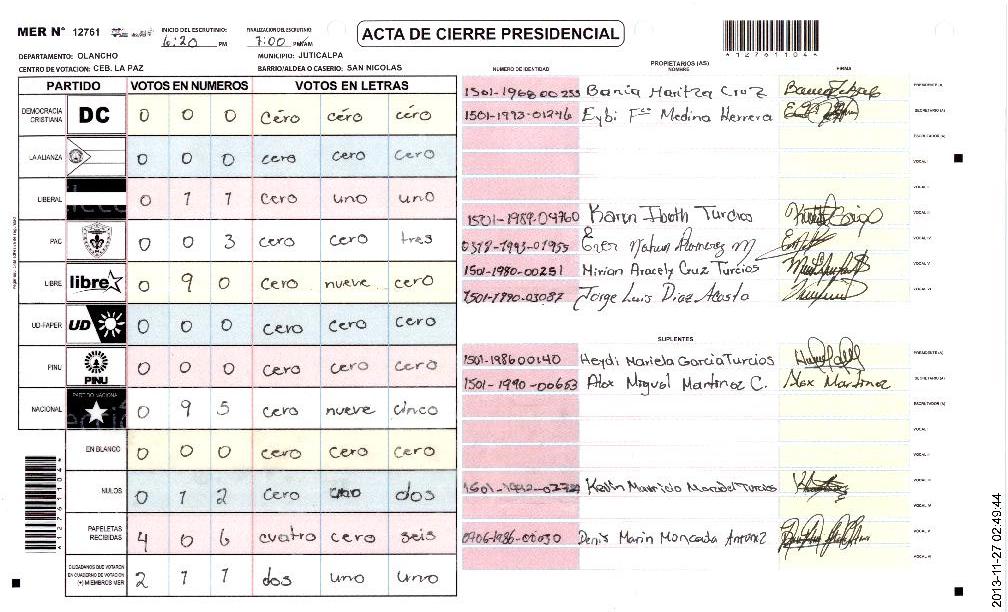 MER Nº 12761
INICIO DEL ESCRUTINIO: 6:20 PM
FINALIZACION DEL ESCRUTINIO 7:00 PM/AM
ACTA DE CIERRE PRESIDENCIAL
*A12761104*
DEPARTAMENTO: OLANCHO
MUNICIPIO: JUTICALPA
CENTRO DE VOTACION: CEB. LA PAZ
BARRIO/ALDEA O CASERIO: SAN NICOLAS
PARTIDO VOTOS EN NUMEROS VOTOS EN LETRAS
DEMOCRACIA CRISTIANA DC 0 0 0 céro céro céro
LA ALIANZA 0 0 0 cero cero cero
LIBERAL 0 1 1 cero uno uno
PAC 0 0 3 cero cero tres
LIBRE libre 0 9 0 cero nueve cero
UD-FAPER UD 0 0 0 cero cero cero
PINU PINU 0 0 0 cero cero cero
NACIONAL PARTIDO NACIONAL 0 9 5 cero nueve cinco
EN BLANCO 0 0 0 cero cero cero
NULOS 0 1 2 cero uno dos
PAPELETAS RECIBIDAS 4 0 6 cuatro cero seis
CIUDADANOS QUE VOTARON EN CUADERNO DE VOTACION (+) MIEMBROS MER 2 1 1 dos uno uno
*A12761104*
PROPIETARIOS (AS)
NUMERO DE IDENTIDAD NOMBRE FIRMA
1501-1968 00255 Bania Maritza Cruz PRESIDENTE (A)
1501-1993-01246 Eybi Fco Medina Herrera SECRETARIO (A)
ESCRUTADOR (A)
VOCAL I
VOCAL II
1501-1989-04760 Karen Iboth Turcios VOCAL III
1993-01955 Ever Nahun M VOCAL IV
1501-1980-00251 Mirian Aracely Cruz Turcios VOCAL V
1501-1990-03087 Jorge Luis Diaz Acosta VOCAL VI
SUPLENTES
1501-198600140 Heydi Mariela Garcia Turcios PRESIDENTE (A)
1501-1990-00663 Alex Miguel Martinez C. Alex Martinez SECRETARIO (A)
ESCRUTADOR (A)
VOCAL I
VOCAL II
Kevin Mauricio Turcios VOCAL III
VOCAL IV
0706-1986-00030 Denis Marin Moncada Antunez VOCAL V
VOCAL VI
2013-11-27 02:49:44